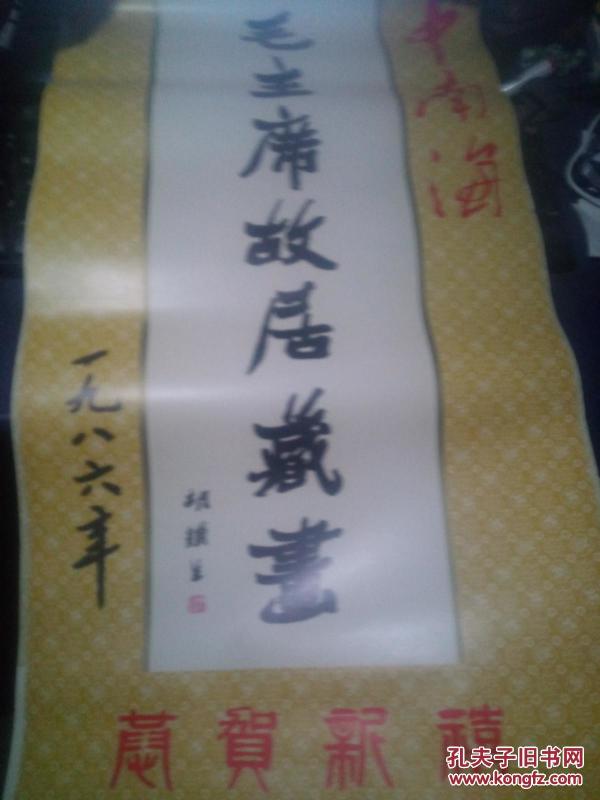 中南海
毛主席故居藏畫
一九八六年
恭賀新禧
孔夫子旧书网
www.kongfz.com